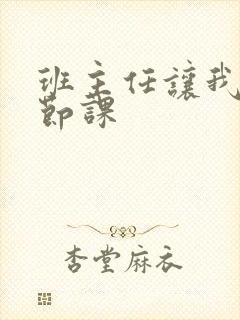 班主任讓我
節課
杏堂麻衣